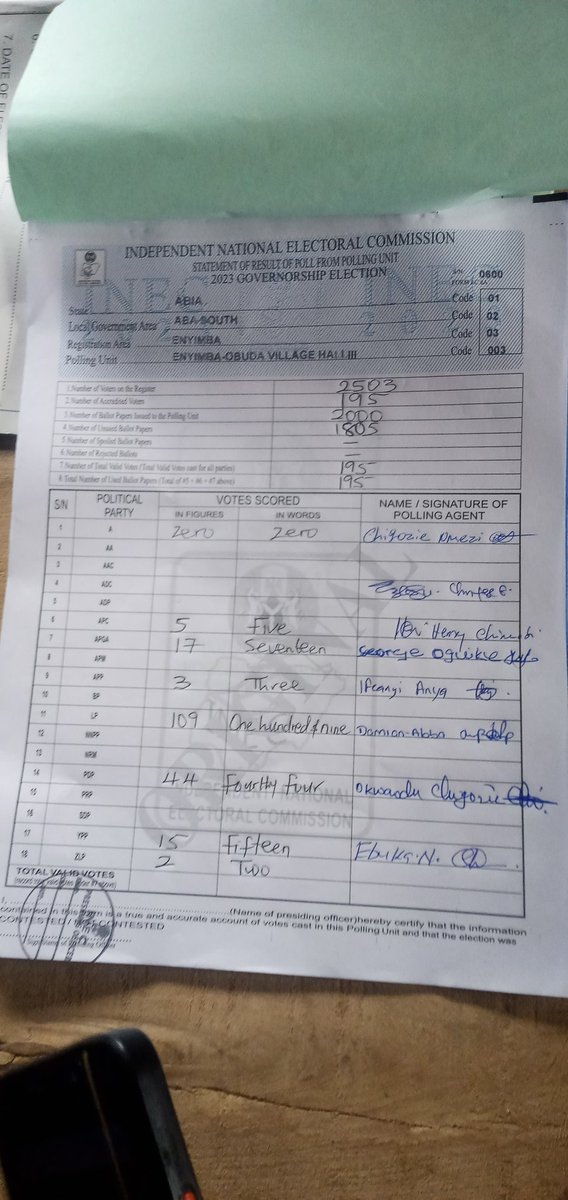 7. DATE OF
INDEPENDENT NATIONAL ELECTORAL COMMISSION
STATEMENT OF RESULT OF POLL FROM POLLING UNIT
2023 GOVERNORSHIP ELECTION
S/N. 0600
State ABIA Code 01
Local Government Area ABA SOUTH Code 02
Registration Area ENYIMBA Code 03
Polling Unit ENYIMBA-OBUDA VILLAGE HALL III Code 003
1 Number of Voters on the Register 2503
2 Number of Accredited Voters 195
3 Number of Ballot Papers Issued to the Polling Unit 2000
4 Number of Unused Ballot Papers 1805
5 Number of Spoiled Ballot Papers —
6 Number of Rejected Ballots —
7 Number of Total Valid Votes (Total Valid Votes cast for all parties) 195
8 Total Number of Used Ballot Papers (Total of #5 + #6 + #7 above) 195
S/N POLITICAL PARTY VOTES SCORED NAME / SIGNATURE OF POLLING AGENT
IN FIGURES IN WORDS
1 A Zero Zero Chigozie
2 AA
3 AAC
4 ADC
5 ADP
6 APC 5 Five Henry
7 APGA 17 Seventeen George
8 APM
9 APP 3 Three Ifeanyi Anya
10 BP
11 LP 109 One hundred & nine Damian Abba
12 NNPP
13 NRM
14 PDP 44 Fourthy four
15 PRP
16 SDP
17 YPP 15 Fifteen Ebuka. N.
18 ZLP 2 Two
TOTAL VALID VOTES
ORIGINAL
INDEPENDENT NATIONAL
ELECTORAL COMMISSION
(Name of presiding officer)hereby certify that the information
contained in this form is a true and accurate account of votes cast in this Polling Unit and that the election was
CONTESTED / CONTESTED